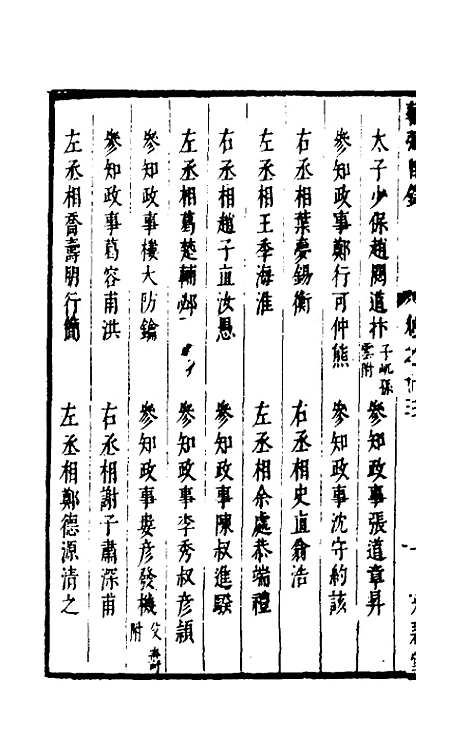 太子少保趙閱道抃 子㞦孫雲附 參知政事張道章昇
參知政事鄭行可仲熊 參知政事沈守約該
右丞相葉夢錫衡 右丞相史直翁浩
左丞相王季海淮 左丞相余處恭端禮
右丞相趙子直汝愚 參知政事陳叔進騤
左丞相葛楚輔邲 參知政事李秀叔彦穎
參知政事樓大防鑰 參知政事婁彦發機 父壽附
參知政事葛容甫洪 右丞相謝子肅深甫
左丞相喬壽朋行簡 左丞相鄭德源清之